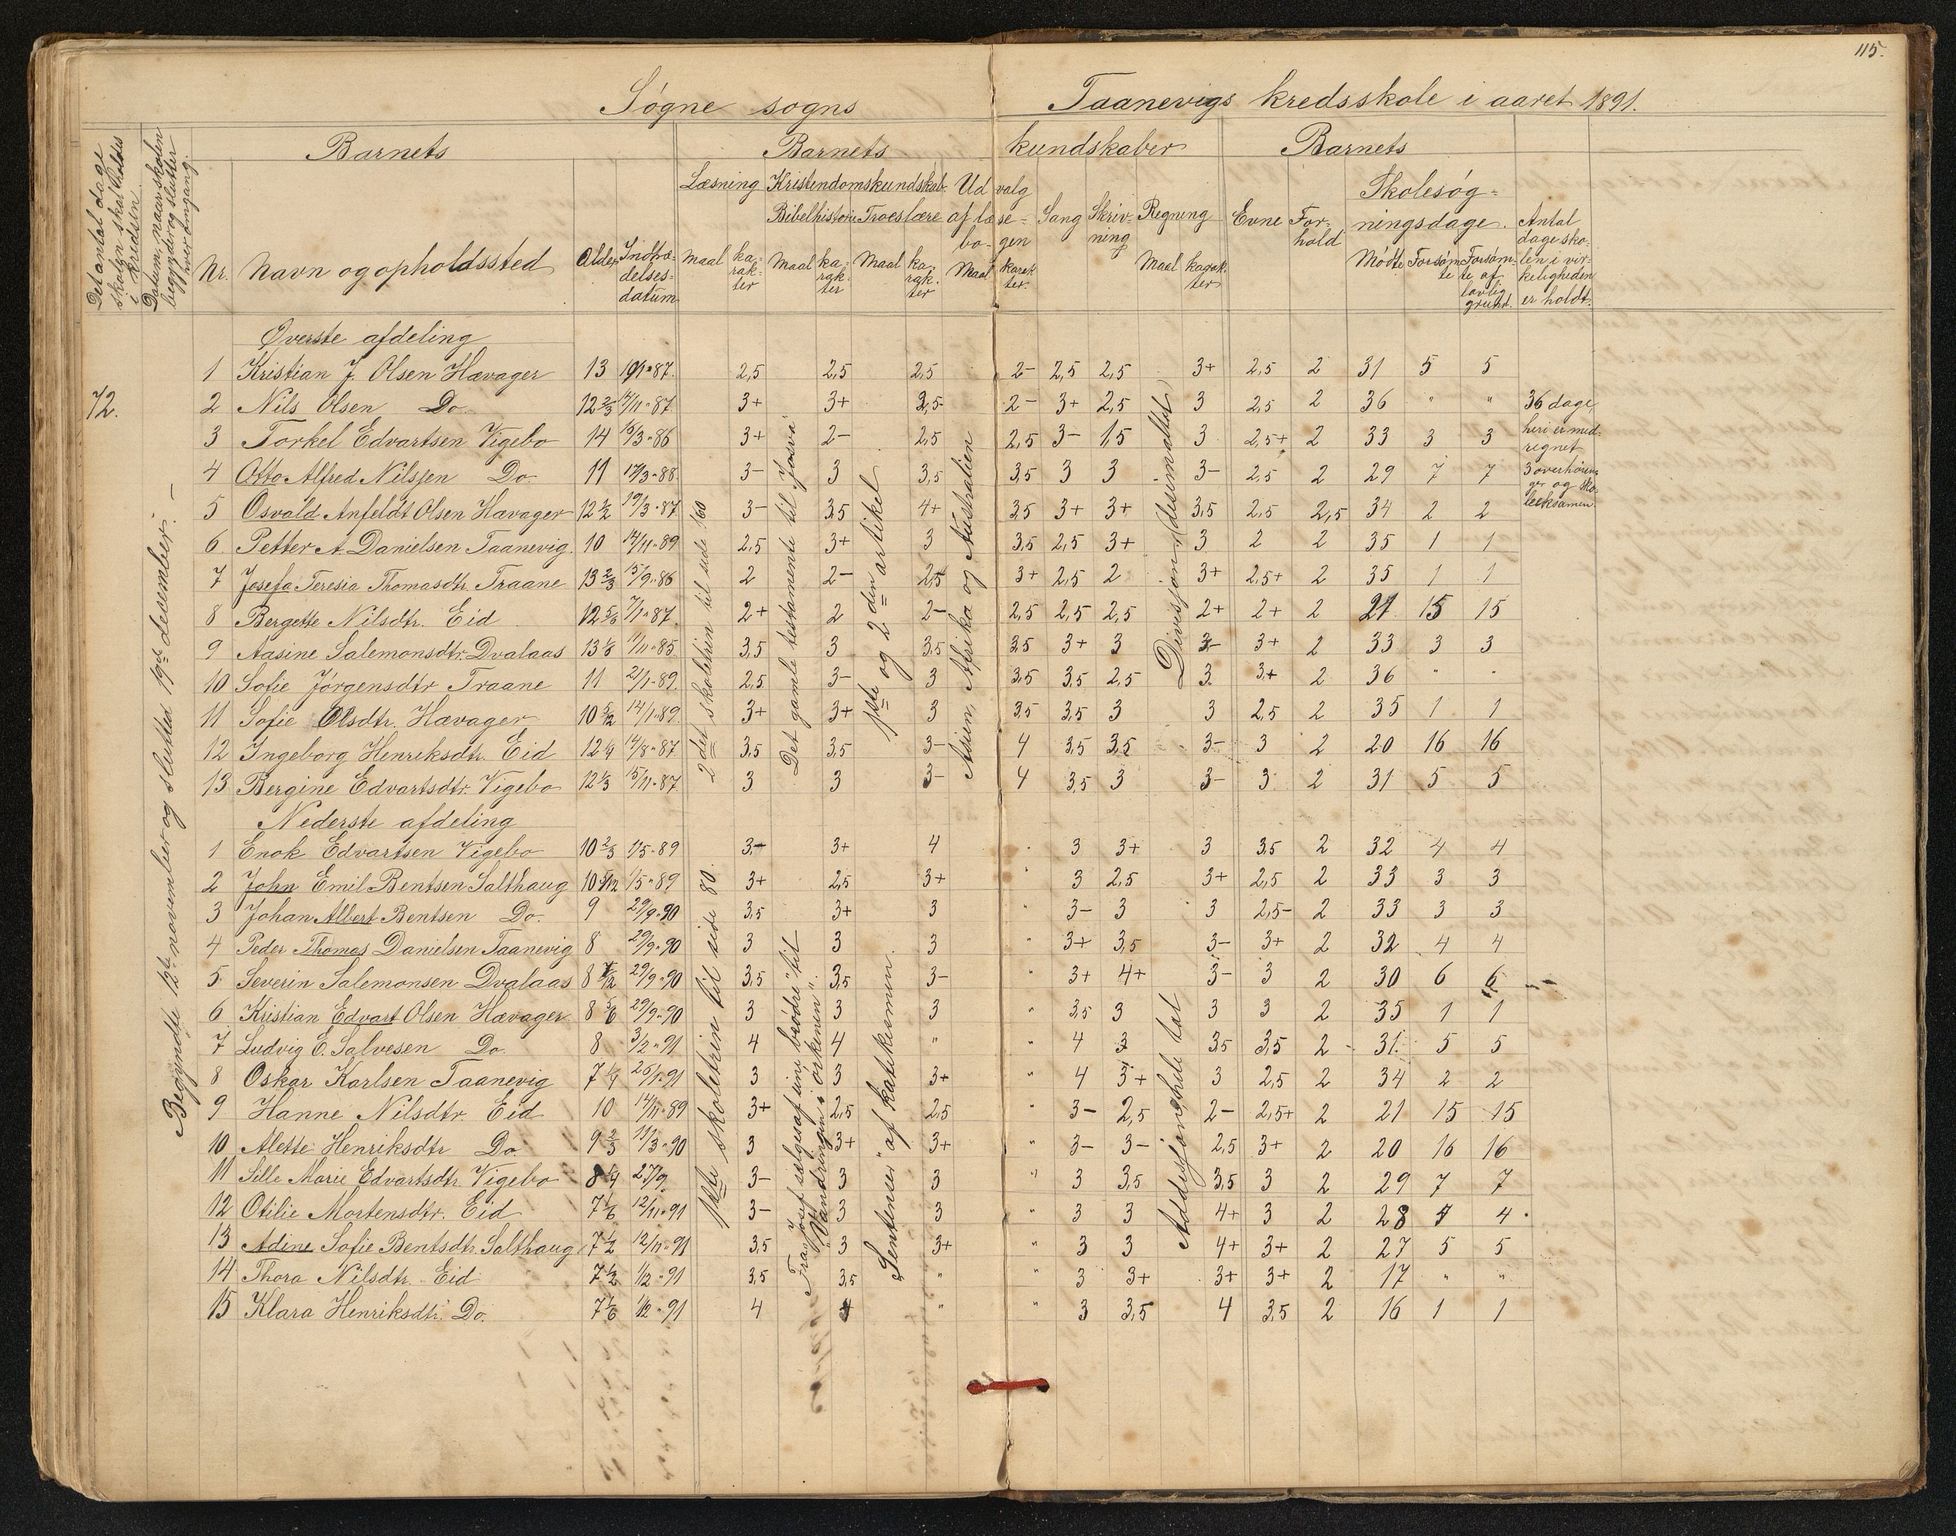 115.
Søgne sogns Taanevigs kredsskole i aaret 1891.
Det antal dage skolen skal holdes i kredsen
Datum, naar skolen begynder og slutter hver omgang.
Barnets Barnets kundskaber Barnets
Nr. Navn og opholdssted Alder Indtrædelsesdatum
Læsning Kristendomskundskab. Udvalg af læsebogen Sang Skrivning Regning Evne Forhold Skolesøgningsdage. Antal dage skolen i virkeligheden er holdt.
Bibelhistorie Troeslære
Maal karakter Maal karakter Maal karakter Maal karakter Maal karakter Mødte Forsømte Forsømte af lovlig grund.
72.
Begyndte 12te november og slutted 19de december. —
Øverste afdeling
1 Kristian J. Olsen Hævager 13 87. 2,5 2,5 2,5 2- 2,5 2,5 3+ 2,5 2 31 5 5
2 Nils Olsen Do 12 2/3 11-87. 3+ 3+ 3,5 2- 3+ 2,5 3 2,5 2 36 " "
3 Torkel Edvartsen Vigebo 14 3-86 3+ 2- 2,5 2,5 3- 1,5 3 2,5+ 2 33 3 3
4 Otto Alfred Nilssen Do 11 17/3-88 3- 3 3,5 3,5 3 3 3- 2,5 2 29 7 7
5 Osvald Anfeldt Olsen Hævager 12 1/2 19/3-87 3- 3,5 4+ 3,5 3+ 3+ 3,5 2,5 2,5 34 2 2
6 Petter A. Danielsen Taanevig. 10 14/11-89 2,5 3+ 3 3,5 2,5 3+ 3 2 2 35 1 1
7 Josefa Teresia Thomasdtr. Traane 13 2/3 15/9-86 2 2- 2,5 3+ 2,5 2 3+ 2,5+ 2 35 1 1
8 Bergette Nilsdtr. Eid 12 5/6 7/1-87. 2+ 2 2- 2,5 2,5 2,5 2+ 2+ 2 21 15 15
9 Aasine Salemonsdtr. Dvalaas 13 1/3 11-85 3,5 3 3,5 3,5 3+ 3 3- 3+ 2 33 3 3
10 Sofie Jørgensdtr Traane 11 2/1-89. 2,5 3- 3 3,5 3,5 2,5 3. 3+ 2 36 " "
11 Sofie Olsdtr. Hævager 10 5/12 14/1-89. 3+ 3+ 3 3,5 3,5 3 3 2,5 2 35 1 1
12 Ingeborg Henriksdtr. Eid 12 1/4 14/8-87 3,5 3,5 3- 4 3,5 3,5 3- 3 2 20 16 16
13 Bergine Edvartsdtr. Vigebo 12 1/3 15/11-87 3 3 3- 4 3,5 3 3- 3 2 31 5 5
36 dage, heri er medregnet 3 overhøringer og skoleeksamen.
2det skoletrin til side 160
Det gamle testamente til "Josva"
1ste og 2den artikel.
Asien, Afrika og Australien
Divisjon (desimaltal)
Nederste afdeling
1 Enok Edvartsen Vigebo 10 2/3 1/5-89 3+ 3+ 4 " 3 3+ 3 3,5 2 32 4 4
2 John Emil Bentsen Salthaug 10 1/5-89 3+ 2,5 3+ " 3 2,5 3+ 2,5 2 33 3 3
3 Johan Albert Bentsen Do. 9 29/9-90 3,5 3+ 3 " 3- 3 3 2,5- 2 33 3 3
4 Peder Thomas Danielsen Taanevig 8 29/9-90 3 3 3 " 3+ 3,5 3- 3+ 2 32 4 4
5 Severin Salemonsen Dvalaas 8 29/9-90 3,5 3,5 3- " 3+ 4+ 3- 3 2 30 6 6
6 Kristian Edvart Olsen Hævager 8 5/6 29/9-90 3 3 3 " 3,5 3 3 3 2 35 1 1
7 Ludvig E. Salvesen Do 8 3/2-91 4 4 " " 4 3 3,5 3,5 2 31. 5 5
8 Oskar Karlsen Taanevig 7 1/4 1-91 3 3 3+ " 4 3+ 3 2,5 2 34 2 2
9 Hanne Nilsdtr. Eid 10 14/11-89 3+ 2,5 2,5 " 3- 2,5 2- 2,5+ 2 21 15 15
10 Alette Henriksdtr Do 9 2/3 11/3-90 3 3+ 3+ " 3- 3- 2,5 3+ 2 20 16 16
11 Sille Marie Edvartsdtr. Vigebo 8 1/4 27/9. 3- 3 3 " 3 3,5 3,5 3 2 29 7 7
12 Otilie Mortensdtr. Eid 7 1/6 12/11-91 3- 3 3 " 3 3 4+ 3 2 28 4 4
13 Adine Sofie Bentsdtr. Salthaug 7 1/2 12/11-91 3,5 3 3+ " 3 3 4+ 3+ 2 27 5 5
14 Thora Nilsdtr. Eid 7 1/2 1/2-91 3,5 3,5 " " 3 3+ 3+ 3+ 2 17 " "
15 Klara Henriksdtr. Do. 7 1/6 1/2-91 4 4 " " 3 3,5 4 3,5 2 16 1 1
1ste skoletrin til side 80.
Fra "Josef sælges af sine brødre" til "Vandringen i ørkenen".
"Sentenser" af katekismen.
Addisjon, hele tal